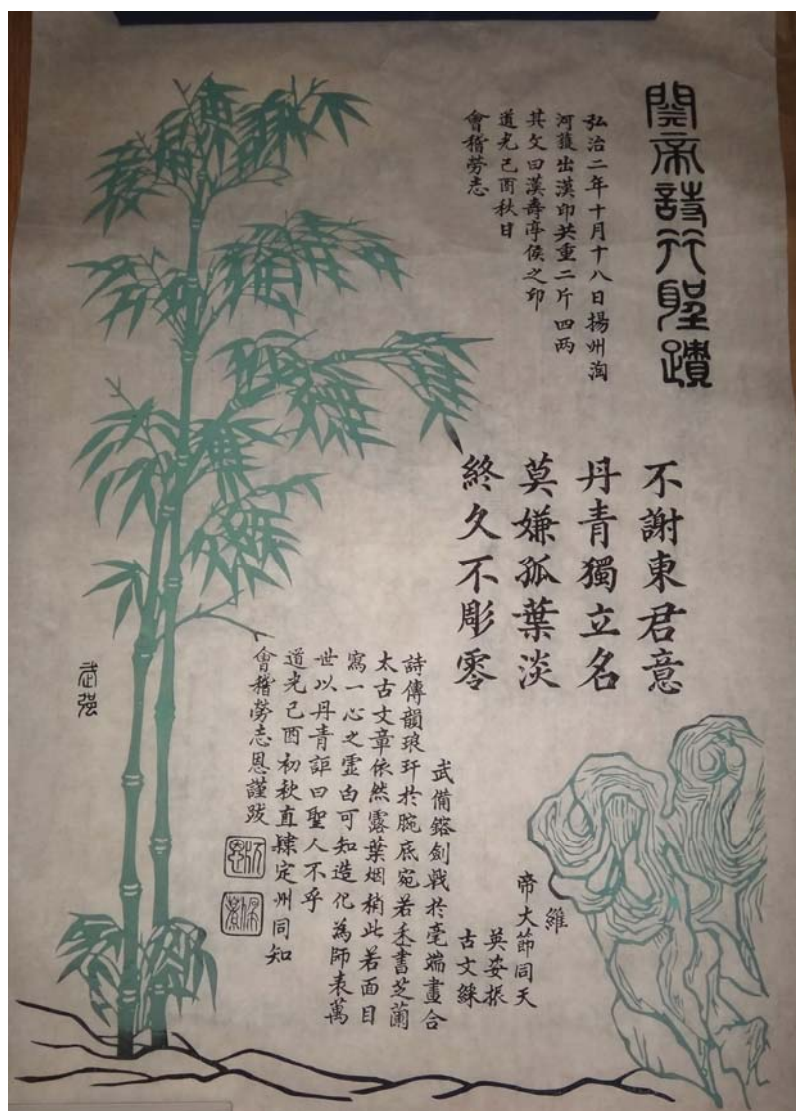 關帝詩竹聖蹟
弘治二年十月十八日揚州淘
河獲出漢印共重二斤四兩
其文曰漢壽亭侯之印
道光己酉秋日
會稽勞志
不謝東君意
丹青獨立名
莫嫌孤葉淡
終久不彫零
維
帝大節同天
英姿振
古文綵
武備鎔劍戟於毫端畫合
詩傳韻琅玕於腕底宛若禾書芝蘭
太古文章依然露葉烟梢此若面目
寫一心之霊白可知造化為師表萬
世以丹青詎曰聖人不乎
道光己酉初秋直隸定州同知
會稽勞志恩謹跋
武强